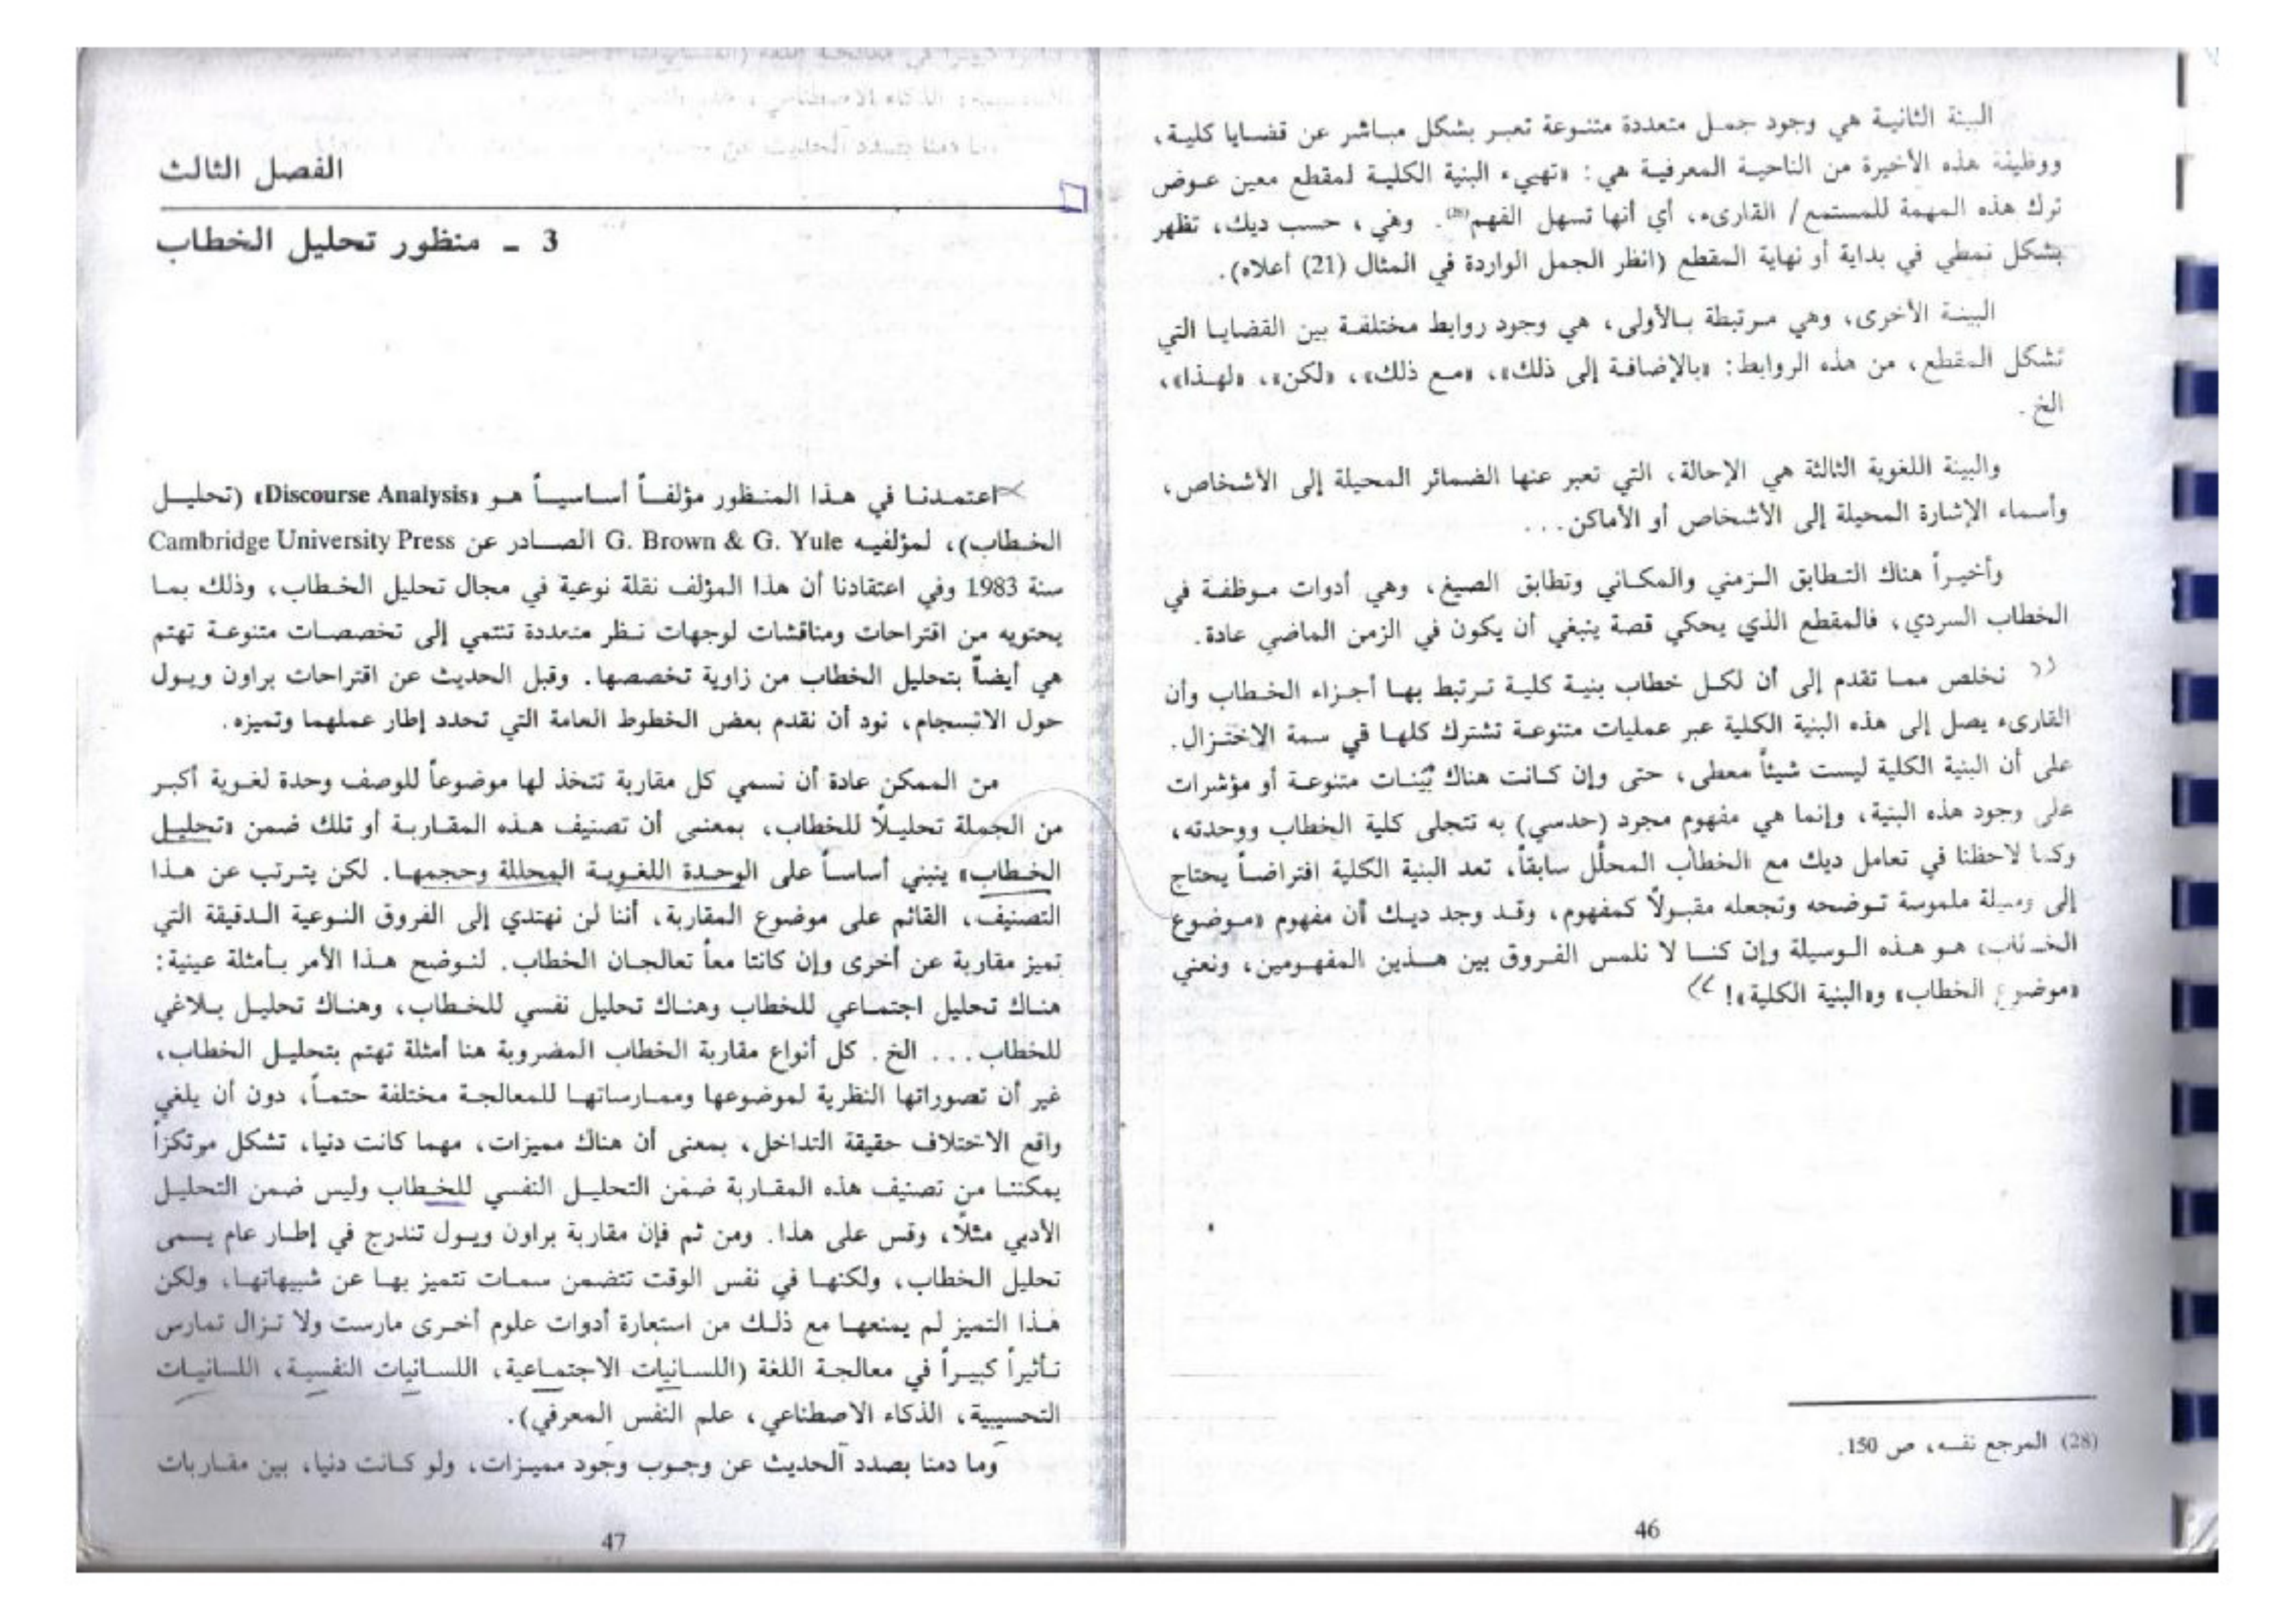 البينة الثانية هي وجود جمل متعددة متنوعة تعبر بشكل مباشر عن قضايا كلية،
ووظيفة هذه الأخيرة من الناحية المعرفية هي: «تهيىء البنية الكلية لمقطع معين عوض
ترك هذه المهمة للمستمع/ القارىء، أي أنها تسهل الفهم(28). وهي، حسب ديك، تظهر
بشكل نمطي في بداية أو نهاية المقطع (انظر الجمل الواردة في المثال (21) أعلاه).
البينة الأخرى، وهي مرتبطة بالأولى، هي وجود روابط مختلفة بين القضايا التي
تشكل المقطع، من هذه الروابط: «بالإضافة إلى ذلك»، «مع ذلك»، «لكن»، «لهذا»،
الخ.
والبينة اللغوية الثالثة هي الإحالة، التي تعبر عنها الضمائر المحيلة إلى الأشخاص،
وأسماء الإشارة المحيلة إلى الأشخاص أو الأماكن...
وأخيراً هناك التطابق الزمني والمكاني وتطابق الصيغ، وهي أدوات موظفة في
الخطاب السردي، فالمقطع الذي يحكي قصة ينبغي أن يكون في الزمن الماضي عادة.
نخلص مما تقدم إلى أن لكل خطاب بنية كلية ترتبط بها أجزاء الخطاب وأن
القارىء يصل إلى هذه البنية الكلية عبر عمليات متنوعة تشترك كلها في سمة الاختزال.
على أن البنية الكلية ليست شيئاً معطى، حتى وإن كانت هناك بَيّنات متنوعة أو مؤشرات
على وجود هذه البنية، وإنما هي مفهوم مجرد (حدسي) به تتجلى كلية الخطاب ووحدته،
وكما لاحظنا في تعامل ديك مع الخطاب المحلَّل سابقاً، تعد البنية الكلية افتراضاً يحتاج
إلى وسيلة ملموسة توضحه وتجعله مقبولاً كمفهوم، وقد وجد ديك أن مفهوم «موضوع
الخطاب» هو هذه الوسيلة وإن كنا لا نلمس الفروق بين هذين المفهومين، ونعني
«موضوع الخطاب» و«البنية الكلية»!
(28) المرجع نفسه، ص 150.
46
الفصل الثالث
3 ـ منظور تحليل الخطاب
اعتمدنا في هذا المنظور مؤلفاً أساسياً هو «Discourse Analysis» (تحليل
الخطاب)، لمؤلفيه G. Brown & G. Yule الصادر عن Cambridge University Press
سنة 1983 وفي اعتقادنا أن هذا المؤلف نقلة نوعية في مجال تحليل الخطاب، وذلك بما
يحتويه من اقتراحات ومناقشات لوجهات نظر متعددة تنتمي إلى تخصصات متنوعة تهتم
هي أيضاً بتحليل الخطاب من زاوية تخصصها. وقبل الحديث عن اقتراحات براون ويول
حول الانسجام، نود أن نقدم بعض الخطوط العامة التي تحدد إطار عملهما وتميزه.
من الممكن عادة أن نسمي كل مقاربة تتخذ لها موضوعاً للوصف وحدة لغوية أكبر
من الجملة تحليلاً للخطاب، بمعنى أن تصنيف هذه المقاربة أو تلك ضمن «تحليل
الخطاب» ينبني أساساً على الوحدة اللغوية المحللة وحجمها. لكن يترتب عن هذا
التصنيف، القائم على موضوع المقاربة، أننا لن نهتدي إلى الفروق النوعية الدقيقة التي
تميز مقاربة عن أخرى وإن كانتا معاً تعالجان الخطاب. لنوضح هذا الأمر بأمثلة عينية:
هناك تحليل اجتماعي للخطاب وهناك تحليل نفسي للخطاب، وهناك تحليل بلاغي
للخطاب... الخ. كل أنواع مقاربة الخطاب المضروبة هنا أمثلة تهتم بتحليل الخطاب،
غير أن تصوراتها النظرية لموضوعها وممارساتها للمعالجة مختلفة حتماً، دون أن يلغي
واقع الاختلاف حقيقة التداخل، بمعنى أن هناك مميزات، مهما كانت دنيا، تشكل مرتكزاً
يمكننا من تصنيف هذه المقاربة ضمن التحليل النفسي للخطاب وليس ضمن التحليل
الأدبي مثلاً، وقس على هذا. ومن ثم فإن مقاربة براون ويول تندرج في إطار عام يسمى
تحليل الخطاب، ولكنها في نفس الوقت تتضمن سمات تتميز بها عن شبيهاتها، ولكن
هذا التميز لم يمنعها مع ذلك من استعارة أدوات علوم أخرى مارست ولا تزال تمارس
تأثيراً كبيراً في معالجة اللغة (اللسانيات الاجتماعية، اللسانيات النفسية، اللسانيات
التحسيبية، الذكاء الاصطناعي، علم النفس المعرفي).
وما دمنا بصدد الحديث عن وجوب وجود مميزات، ولو كانت دنيا، بين مقاربات
47